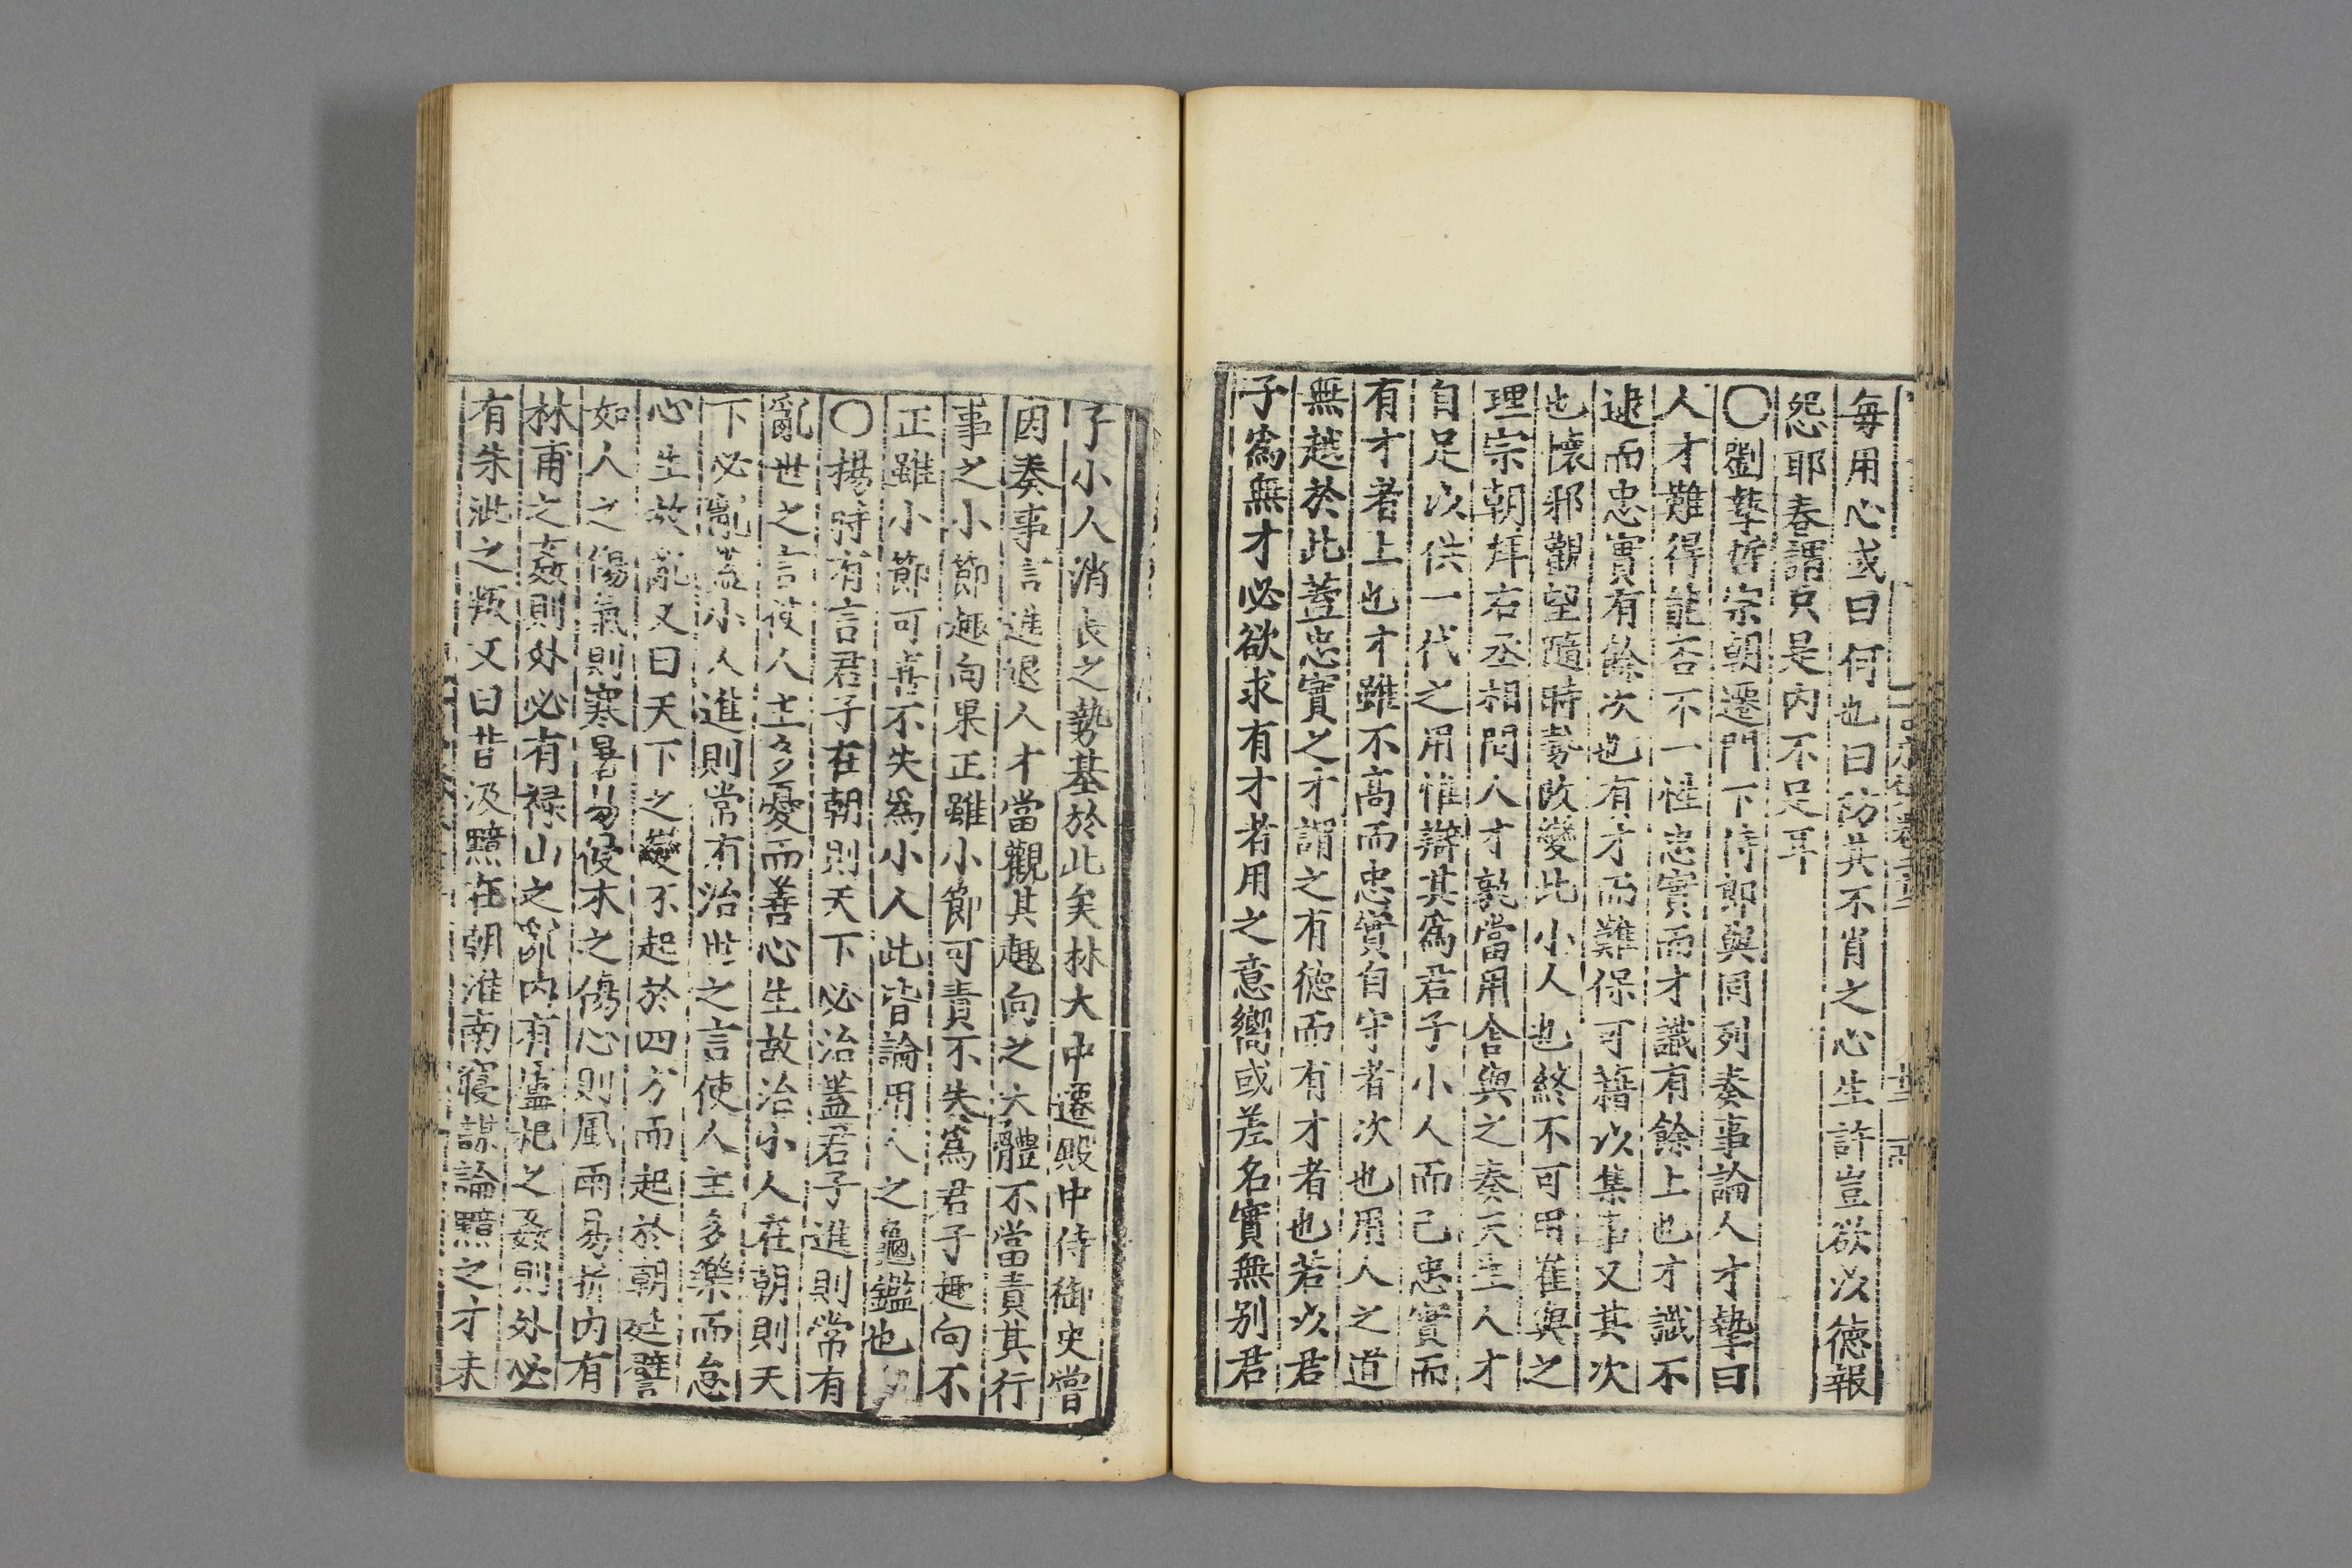 每用心或曰何也曰防其不肖之心生許豈欲以德報
怨耶春謂只是内不足耳
〇劉摯哲宗朝遷門下侍郎與同列奏事論人才摯曰
人才難得能否不一性忠實而才識有餘上也才識不
逮而忠實有餘次也有才而難保可藉以集事又其次
也懷邪觀望隨時勢改變此小人也終不可用崔與之
理宗朝拜右丞相問人才孰當用舍與之奏天生人才
自足以供一代之用惟辯其爲君子小人而已忠實而
有才者上也才雖不高而忠實自守者次也用人之道
無越於此蓋忠實之才謂之有德而有才者也若以君
子爲無才必欲求有才者用之意嚮或差名實無别君
子小人消長之勢基於此矣林大中遷殿中侍御史嘗
因奏事言進退人才當觀其趣向之大體不當責其行
事之小節趣向果正雖小節可責不失爲君子趣向不
正雖小節可喜不失爲小人此皆論用人之龜鑑也
〇楊時有言君子在朝則天下必治蓋君子進則常有
亂世之言使人主多憂而善心生故治小人在朝則天
下必亂蓋小人進則常有治世之言使人主多樂而怠
心生故亂又曰天下之變不起於四方而起於朝廷譬
如人之傷氣則寒暑易侵木之傷心則風雨易折内有
林甫之姦則外必有禄山之亂内有盧杞之姦則外必
有朱泚之叛又曰昔汲黯在朝淮南寢謀論黯之才未